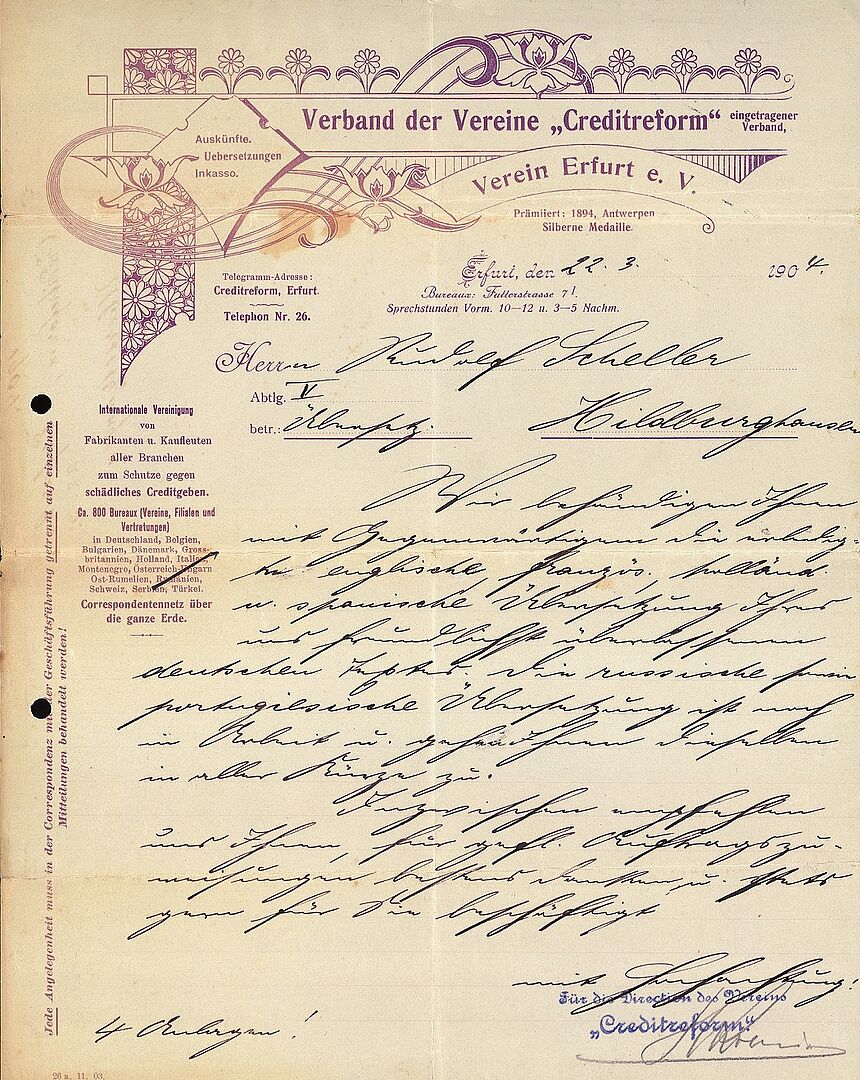 Verband der Vereine „Creditreform“ eingetragener Verband,
Auskünfte.
Uebersetzungen
Inkasso.
Verein Erfurt e. V.
Prämiiert: 1894, Antwerpen
Silberne Medaille.
Telegramm-Adresse:
Creditreform, Erfurt.
Telephon Nr. 26.
Erfurt, den 22. 3. 1904.
Bureaux: Futterstrasse 7 I.
Sprechstunden Vorm. 10—12 u. 3—5 Nachm.
Herrn Rudolf Scheller
Abtlg. V
betr.: Übersetz. Hildburghausen
Internationale Vereinigung
von
Fabrikanten u. Kaufleuten
aller Branchen
zum Schutze gegen
schädliches Creditgeben.
Ca. 800 Bureaux (Vereine, Filialen und
Vertretungen)
in Deutschland, Belgien,
Bulgarien, Dänemark, Gross-
britannien, Holland, Italien,
Montenegro, Österreich-Ungarn
Ost-Rumelien, Rumänien,
Schweiz, Serbien, Türkei.
Correspondentennetz über
die ganze Erde.
Jede Angelegenheit muss in der Correspondenz mit der Geschäftsführung getrennt auf einzelnen
Mitteilungen behandelt werden!
Wir behändigen Ihnen
mit Gegenwärtigem die erledig-
te englische, französ., holländ.
u. spanische Übersetzung Ihres
uns freundlichst überlassenen
deutschen Textes. Die russische sowie
portugiesische Übersetzung ist noch
in Arbeit u. gehen Ihnen dieselben
in aller Kürze zu.
Inzwischen empfehlen
uns Ihnen, für gefl. Auftragszu-
weisungen bestens dankend u. stets
gern für Sie beschäftigt
mit Hochachtung!
Für die Direction des Vereins
„Creditreform“
4 Anlagen!
26 a. 11. 03.